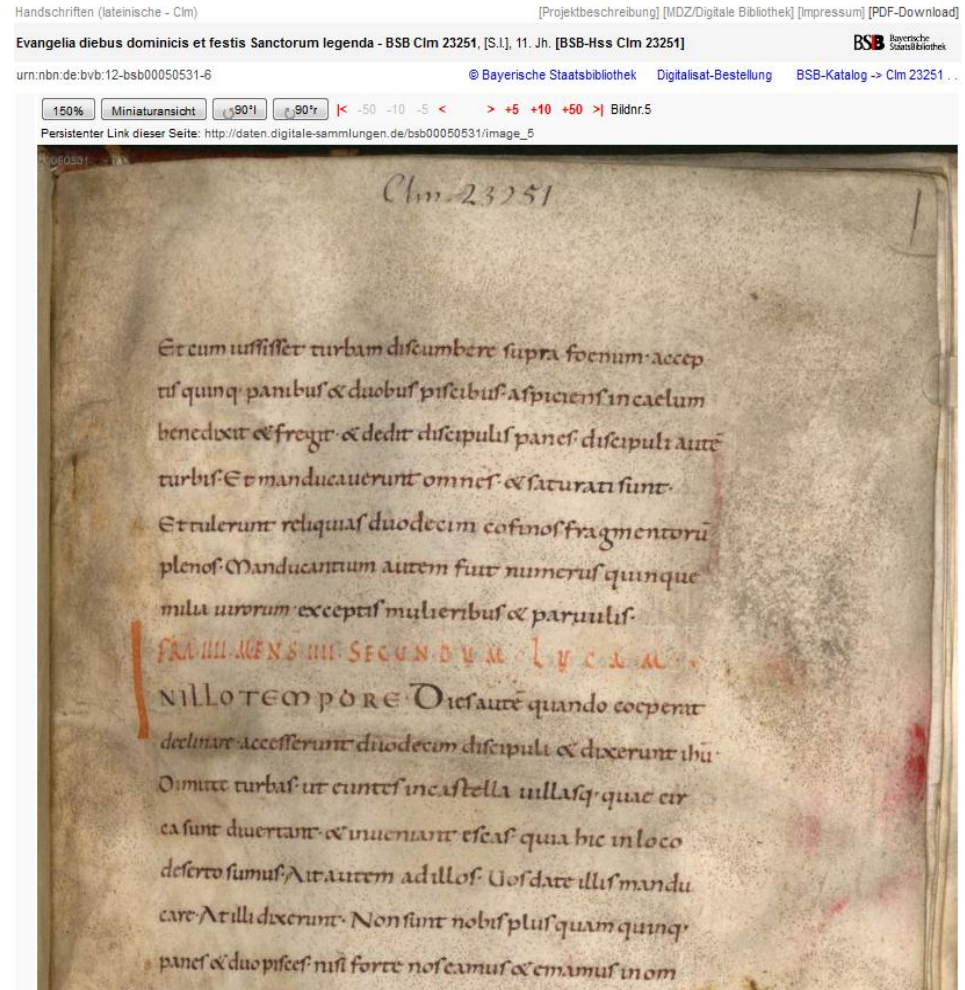 Handschriften (lateinische - Clm) [Projektbeschreibung] [MDZ/Digitale Bibliothek] [Impressum] [PDF-Download]
Evangelia diebus dominicis et festis Sanctorum legenda - BSB Clm 23251, [S.l.], 11. Jh. [BSB-Hss Clm 23251] BSB Bayerische StaatsBibliothek
urn:nbn:de:bvb:12-bsb00050531-6 © Bayerische Staatsbibliothek Digitalisat-Bestellung BSB-Katalog -> Clm 23251 . .
150% Miniaturansicht 90°l 90°r |< -50 -10 -5 < > +5 +10 +50 >| Bildnr.5
Persistenter Link dieser Seite: http://daten.digitale-sammlungen.de/bsb00050531/image_5
00050531
Clm 23251
1
Et cum iussisset turbam discumbere supra foenum· accep
tis quinq· panibus & duobus piscibus· aspiciens in caelum
benedixit & fregit· & dedit discipulis panes· discipuli autē
turbis· Et manducauerunt omnes· & saturati sunt·
Et tulerunt reliquias duodecim cofinos fragmentorū
plenos· Manducantium autem fuit numerus quinque
milia uirorum· exceptis mulieribus & paruulis·
FRA IIII MENS IIII SECUNDUM LUCAM
INILLO TEMPORE· Dies autē quando coeperat
declinare· accesserunt duodecim discipuli & dixerunt ihū·
Dimitte turbas· ut euntes in castella uillasq· quae cir
ca sunt diuertant· & inueniant escas· quia hic in loco
deserto sumus· Ait autem ad illos· Uos date illis mandu
care· At illi dixerunt· Non sunt nobis plus quam quinq·
panes & duo pisces· nisi forte nos eamus & emamus in om